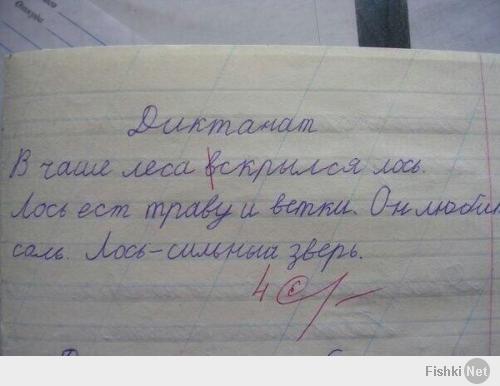 Диктанат
В чаше леса вскрылся лось.
Лось ест траву и ветки. Он любит
соль. Лось-сильный зверь.
4
Fishki.Net